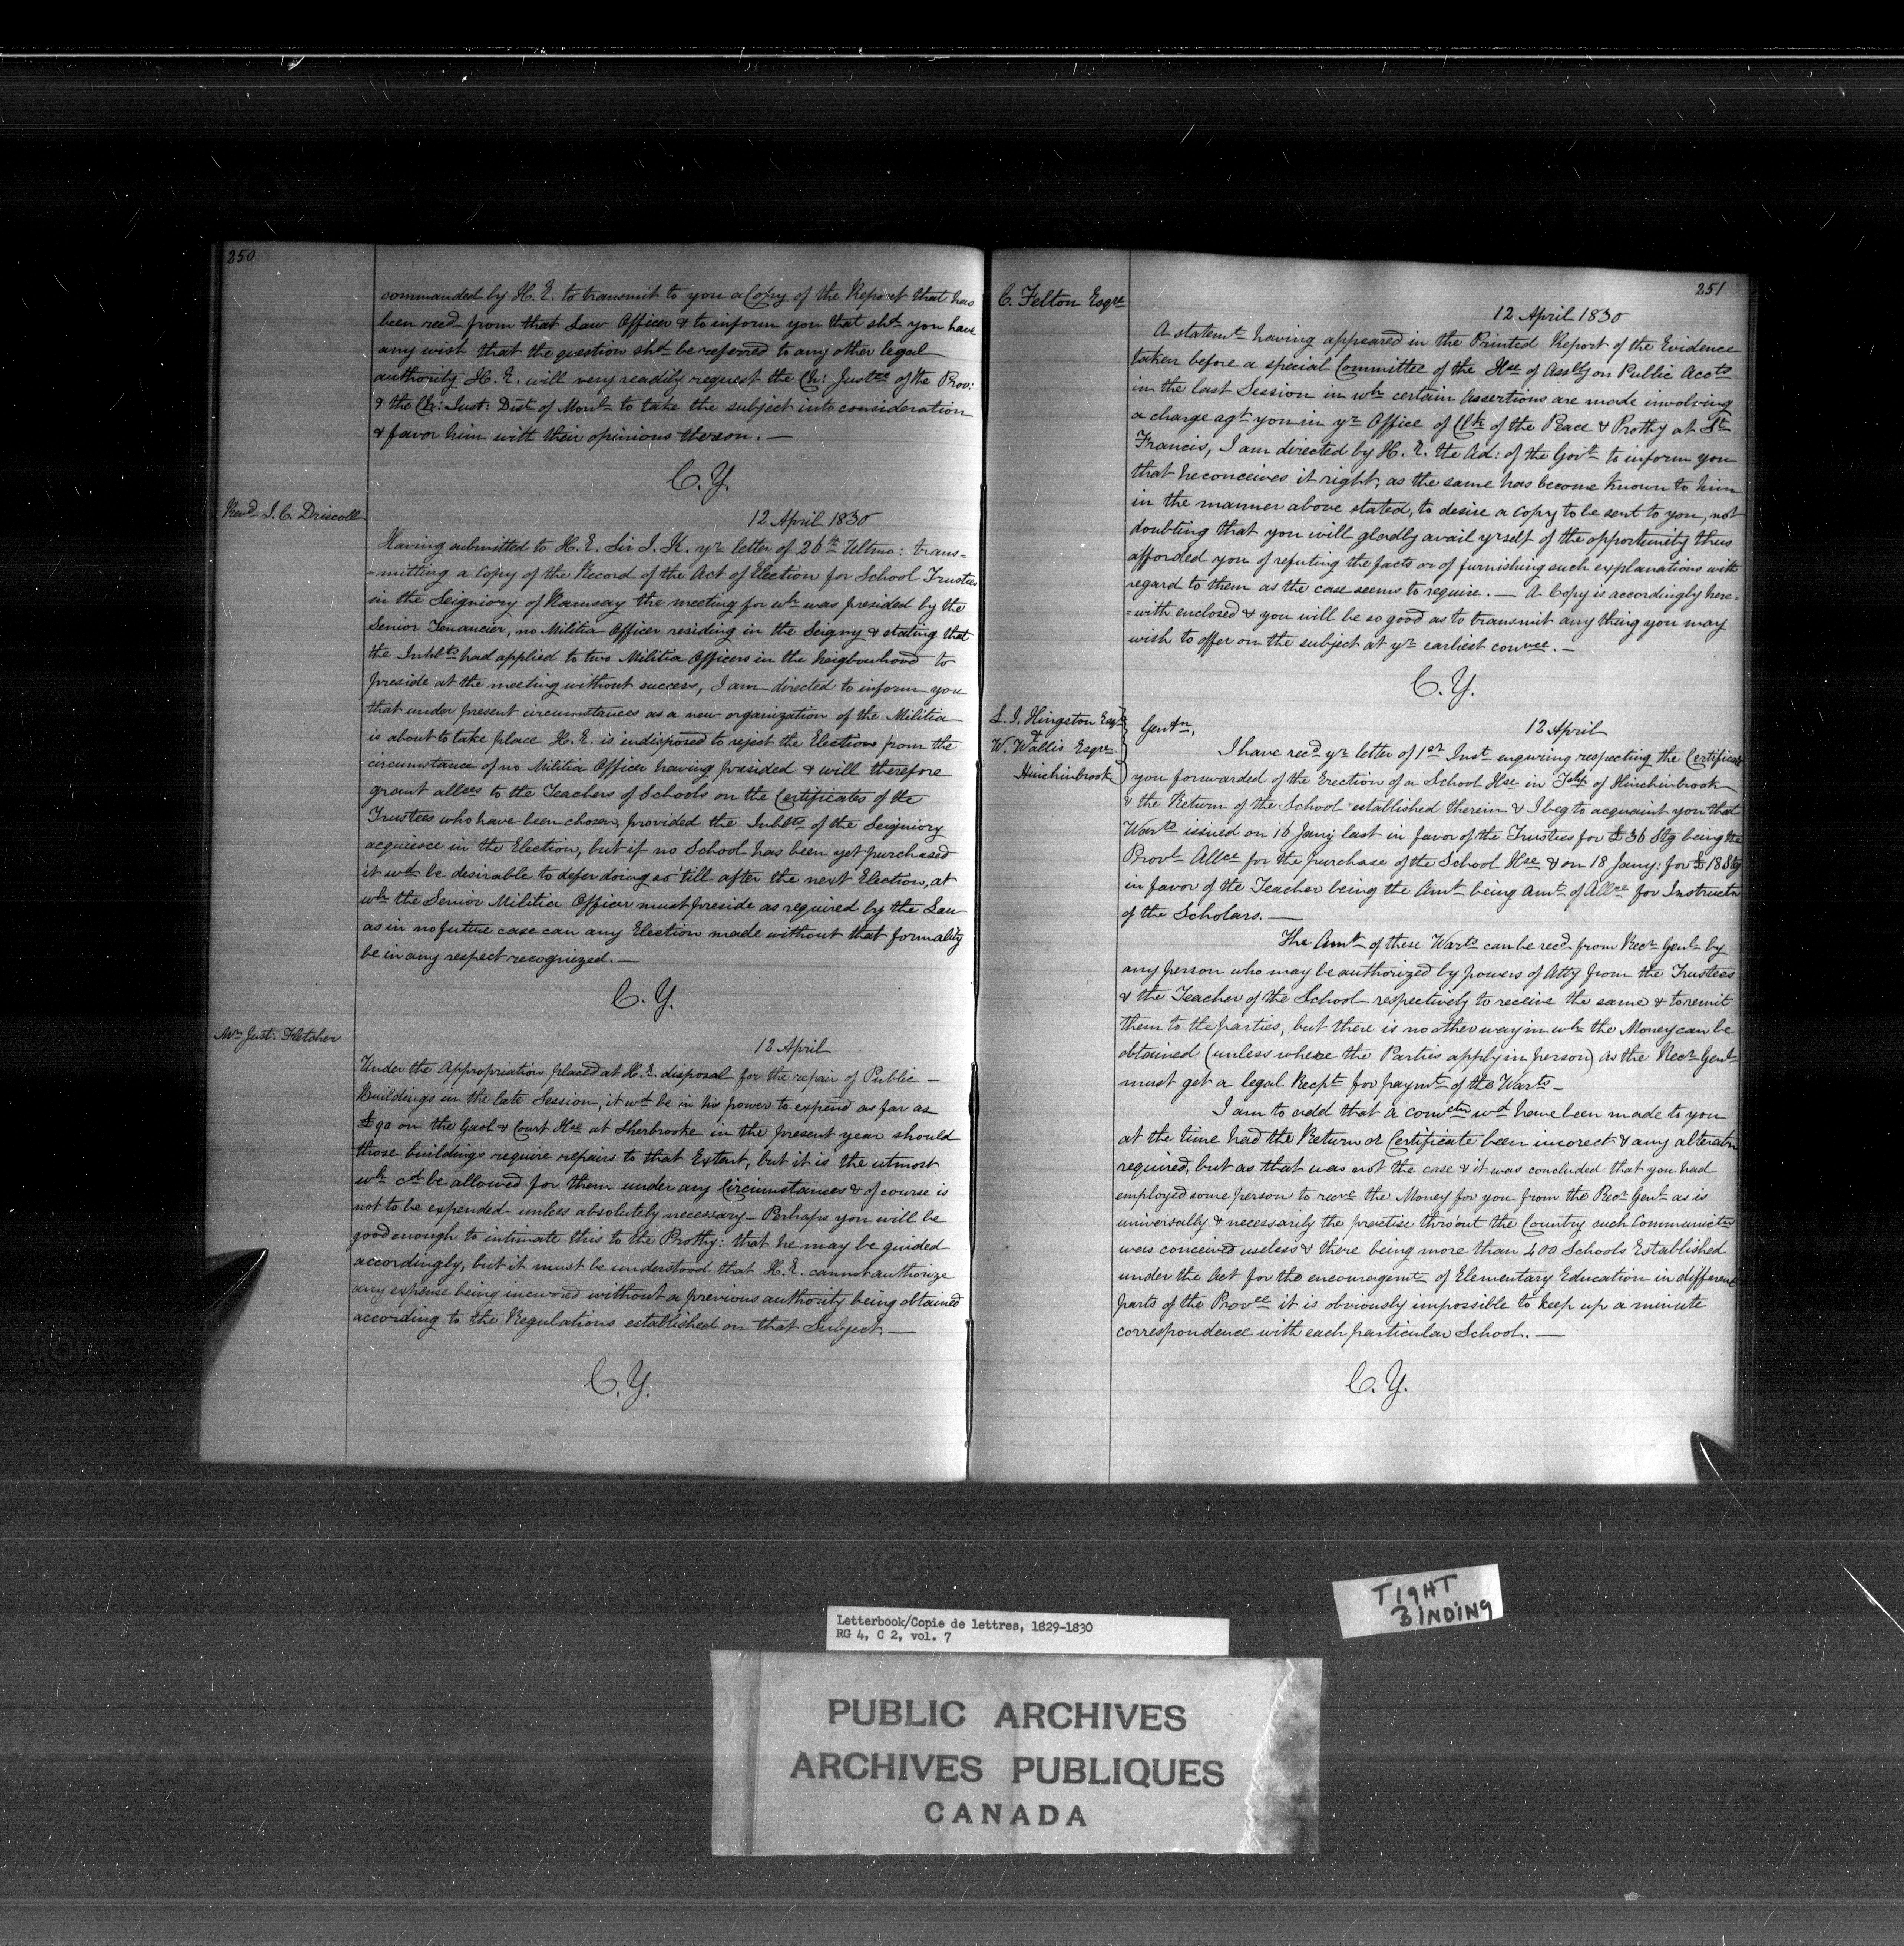 250
commanded by H. E. to transmit to you a Copy of the Report that has
been recd from that Law Officer & to inform you that shd you have
any wish that the question shd be referred to any other legal
authority H. E. will very readily request the Ch: Justce of the Prov:
& the Ch: Just: Dist of Monl to take the subject into consideration
& favor him with their opinions thereon. —
C. Y.
Revd I. C. Driscoll
12 April 1830
Having submitted to H. E. Sir J. K. yr letter of 26th Ultmo: trans=
=mitting a Copy of the Record of the Act of Election for School Trustees
in the Seigniory of Ramsay the meeting for wh was presided by the
Senior Tenancier, no Militia Officer residing in the Seigny & stating that
the Inhbts had applied to two Militia Officers in the neigbourhood to
preside at the meeting without success, I am directed to inform you
that under present circumstances as a new organization of the Militia
is about to take place H. E. is indisposed to reject the Election from the
circumstance of no Militia Officer having presided & will therefore
grant allces to the Teachers of Schools on the Certificates of the
Trustees who have been chosen, provided the Inhbts of the Seigniory
acquiesce in the Election, but if no School has been yet purchased
it wd be desirable to defer doing so 'till after the next Election, at
wh the Senior Militia Officer must preside as required by the Law
as in no future case can any Election made without that formality
be in any respect recognized. —
C. Y.
Mr Just: Fletcher
12 April
Under the Appropriation placed at H. E. disposal for the repair of Public —
Buildings in the late Session, it wd be in his power to expend as far as
£90 on the Gaol & Court Hse at Sherbrooke in the present year should
those buildings require repairs to that Extent, but it is the utmost
wh cd be allowed for them under any Circumstances & of course is
not to be expended unless absolutely necessary — Perhaps you will be
good enough to intimate this to the Prothy: that he may be guided
accordingly, but it must be understood that H. E. cannot authorize
any expense being incurred without a previous authority being obtained
according to the Regulations established on that Subject —
C. Y.
251
C. Felton Esqre
12 April 1830
A statemt having appeared in the Printed Report of the Evidence
taken before a special Committee of the Hse of Assbly on Public Accts
in the last Session in wh certain Assertions are made involving
a charge agt you in yr Office of Clk of the Peace & Prothy at St
Francis, I am directed by H. E. the Ad: of the Govt to inform you
that he conceives it right, as the same has become known to him
in the manner above stated, to desire a Copy to be sent to you, not
doubting that you will gladly avail yrself of the opportunity thus
afforded you of refuting the facts or of furnishing such explanations with
regard to them as the case seems to require. — A Copy is accordingly here=
=with enclosed & you will be so good as to transmit any thing you may
wish to offer on the subject at yr earliest convce. —
C. Y.
S. J. Hingston Esqr
&
W. Wallis Esqre
Hinchinbrook
12 April
Gentn,
I have recd yr letter of 1st Inst enquiring respecting the Certificate
you forwarded of the Erection of a School Hse in Tshp of Hinchinbrook
& the Return of the School established therein & I beg to acquaint you that
Warts issued on 16 Jany last in favor of the Trustees for £36 Stg being the
Provl Allce for the purchase of the School Hse & on 18 Jany: for £18 Stg
in favor of the Teacher being the Amt being amt of Allce for Instructn
of the Scholars. —
The Amt of these Warts can be recd from Recr Genl by
any person who may be authorized by powers of Atty from the Trustees
& the Teacher of the School respectively to receive the same & to remit
them to the parties, but there is no other way in wh the Money can be
obtained (unless where the Parties apply in person) as the Recr Genl
must get a legal Recpt for paymt of the Warts —
I am to add that a comctn wd have been made to you
at the time had the Return or Certificate been incorect & any alteratn
required, but as that was not the case & it was concluded that you had
employed some person to recve the Money for you from the Recr Genl as is
universally & necessarily the practise thro'out the Country such Communictn
was conceived useless & there being more than 400 Schools Established
under the Act for the encouragemt of Elementary Education in different
parts of the Provce it is obviously impossible to keep up a minute
correspondence with each particular School. —
C. Y.
TIGHT
BINDING
Letterbook/Copie de lettres, 1829-1830
RG 4, C 2, vol. 7
PUBLIC ARCHIVES
ARCHIVES PUBLIQUES
CANADA